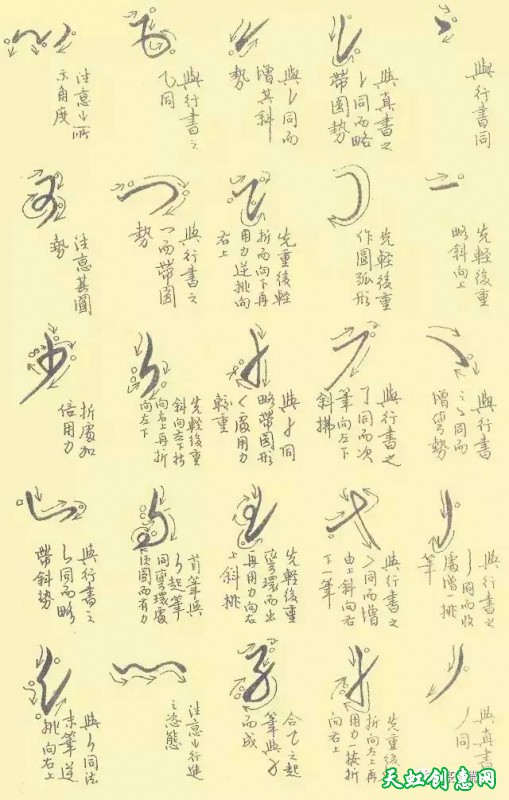 與行書同
先輕後重
略斜向上
與行書之
㇏同而
增彎勢
與行書之
亅同而收
處增一挑
筆
與真書
丿同
與真書之
𠄌同而略
帶圓勢
先輕後重
作圓弧形
與行書之
了同而次
筆向左下
斜拂
與行書之
同而增
由上斜向右
下一筆
先重後
折向左上再
用力一按折
向右上
同而
增其斜
勢
先重後輕
折而向下再
用力逆挑向
右上
與同
略帶圓形
處用力
較重
先輕後重
彎環而出
再用力向右
上斜挑
合乙之起
筆與
而成
與行書之
乙同
與行書之
乛而帶圓
勢
先輕後重
斜向左下折
向右上再折
向左下
首筆與
起筆
同彎環處
圓而有力
注意行進
之恣態
注意所
示角度
注意其圓
勢
折處加
倍用力
與行書之
同而略
帶斜勢
與同法
末筆逆
挑向右上
天虹创意网